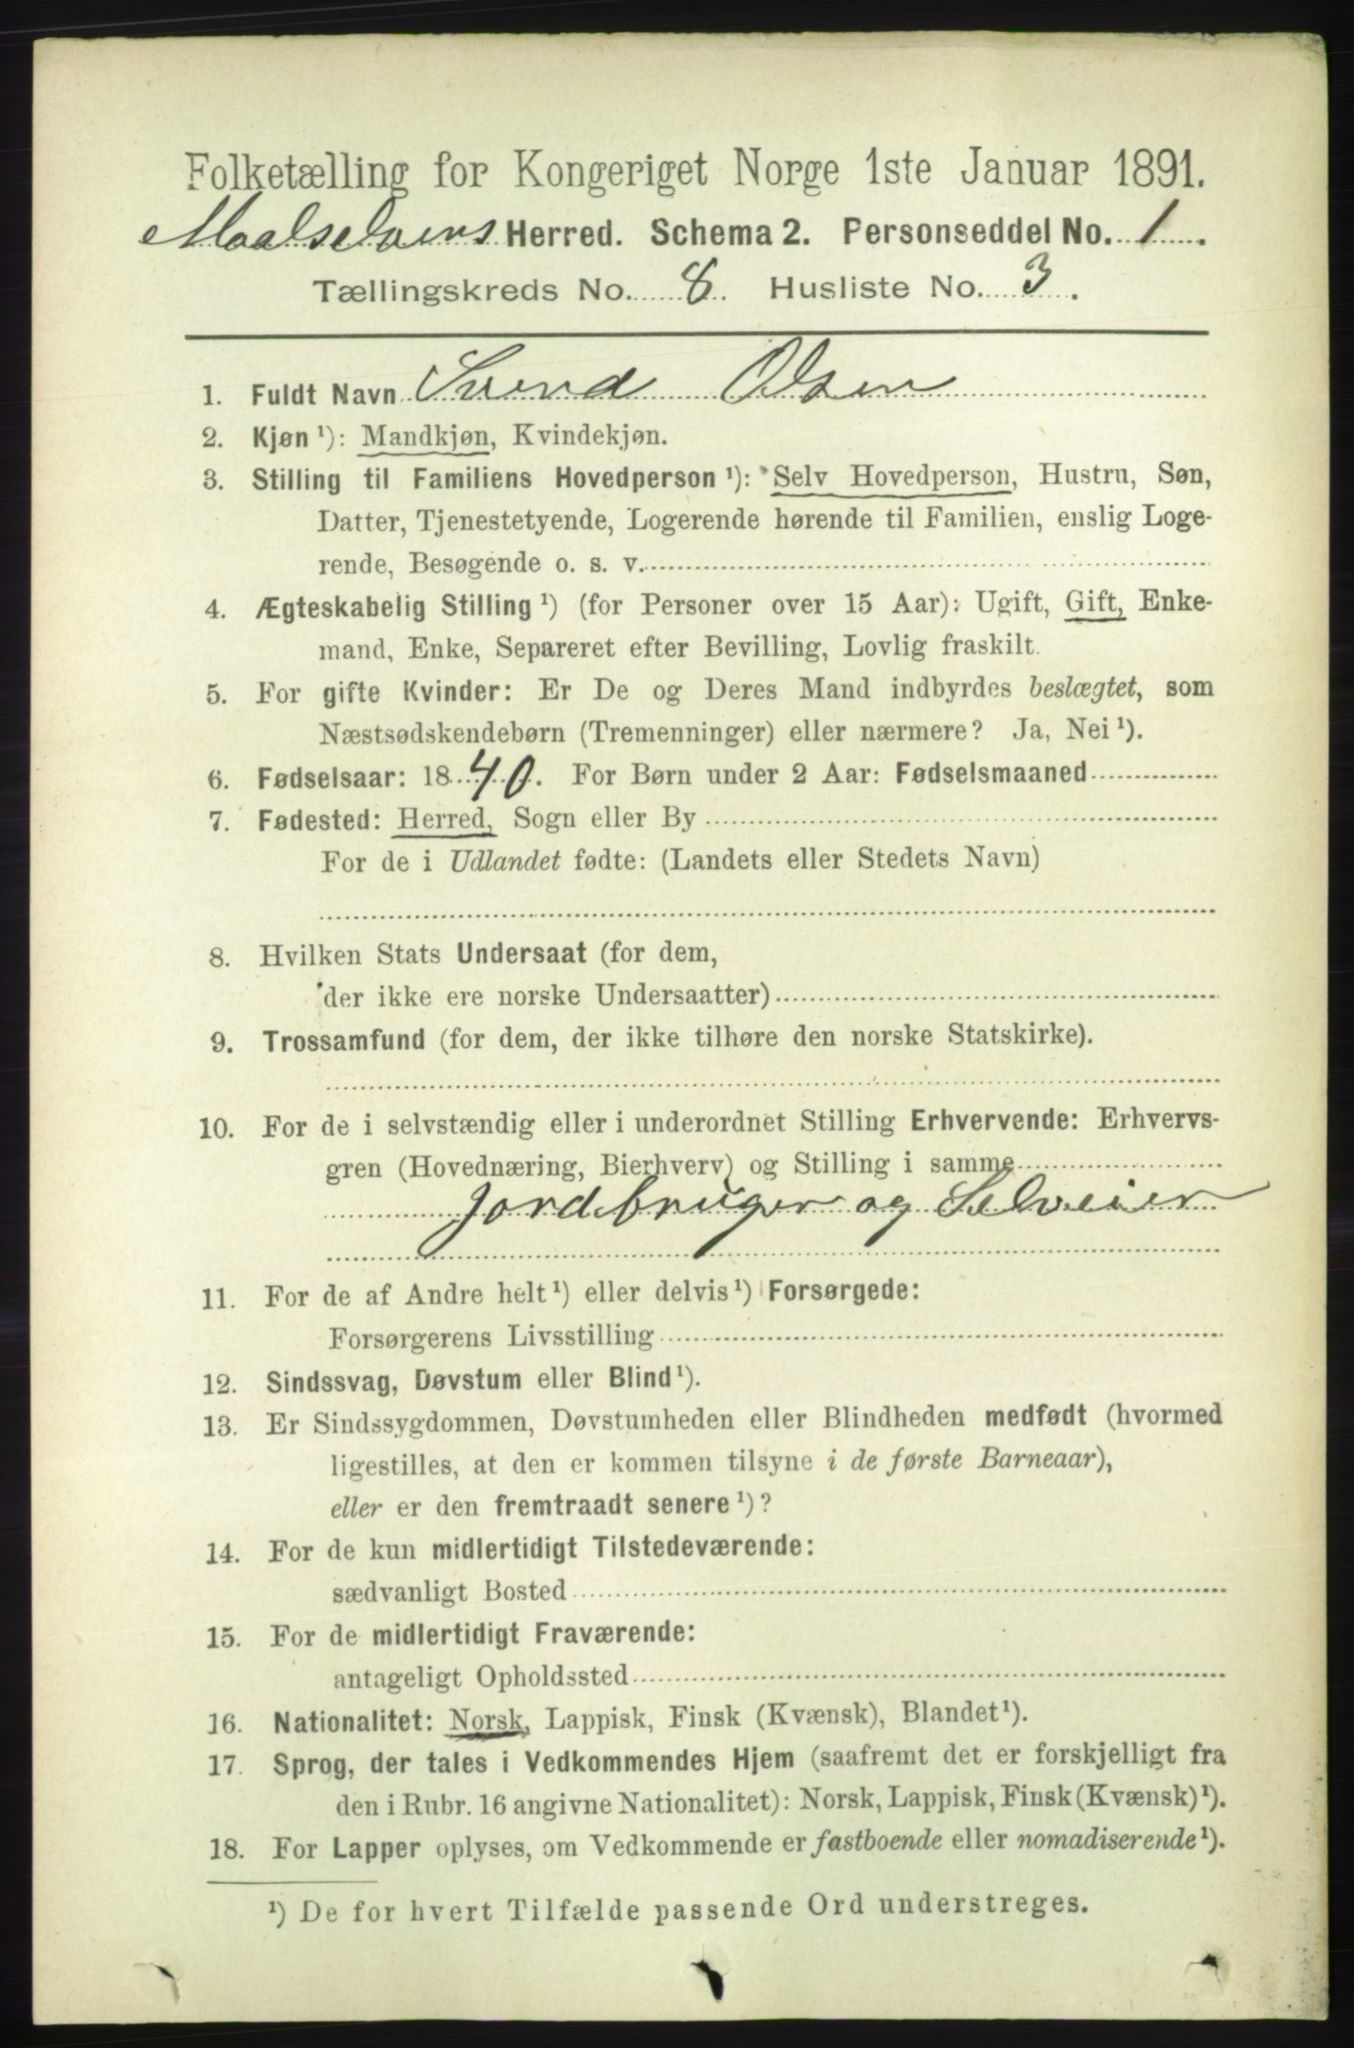 Folketælling for Kongeriget Norge 1ste Januar 1891.
Maalselvens Herred. Schema 2. Personseddel No. 1.
Tællingskreds No. 8. Husliste No. 3.
1. Fuldt Navn Svend Olsen
2. Kjøn ¹): Mandkjøn, Kvindekjøn.
3. Stilling til Familiens Hovedperson ¹): Selv Hovedperson, Hustru, Søn,
Datter, Tjenestetyende, Logerende hørende til Familien, enslig Loge-
rende, Besøgende o. s. v.
4. Ægteskabelig Stilling ¹) (for Personer over 15 Aar): Ugift, Gift, Enke-
mand, Enke, Separeret efter Bevilling, Lovlig fraskilt.
5. For gifte Kvinder: Er De og Deres Mand indbyrdes beslægtet, som
Næstsødskendebørn (Tremenninger) eller nærmere? Ja, Nei ¹).
6. Fødselsaar: 1840. For Børn under 2 Aar: Fødselsmaaned
7. Fødested: Herred, Sogn eller By
For de i Udlandet fødte: (Landets eller Stedets Navn)
8. Hvilken Stats Undersaat (for dem,
der ikke ere norske Undersaatter)
9. Trossamfund (for dem, der ikke tilhøre den norske Statskirke).
10. For de i selvstændig eller i underordnet Stilling Erhvervende: Erhvervs-
gren (Hovednæring, Bierhverv) og Stilling i samme
Jordbruger og Selveier
11. For de af Andre helt ¹) eller delvis ¹) Forsørgede:
Forsørgerens Livsstilling
12. Sindssvag, Døvstum eller Blind ¹).
13. Er Sindssygdommen, Døvstumheden eller Blindheden medfødt (hvormed
ligestilles, at den er kommen tilsyne i de første Barneaar),
eller er den fremtraadt senere ¹)?
14. For de kun midlertidigt Tilstedeværende:
sædvanligt Bosted
15. For de midlertidigt Fraværende:
antageligt Opholdssted
16. Nationalitet: Norsk, Lappisk, Finsk (Kvænsk), Blandet ¹).
17. Sprog, der tales i Vedkommendes Hjem (saafremt det er forskjelligt fra
den i Rubr. 16 angivne Nationalitet): Norsk, Lappisk, Finsk (Kvænsk) ¹).
18. For Lapper oplyses, om Vedkommende er fastboende eller nomadiserende ¹).
¹) De for hvert Tilfælde passende Ord understreges.